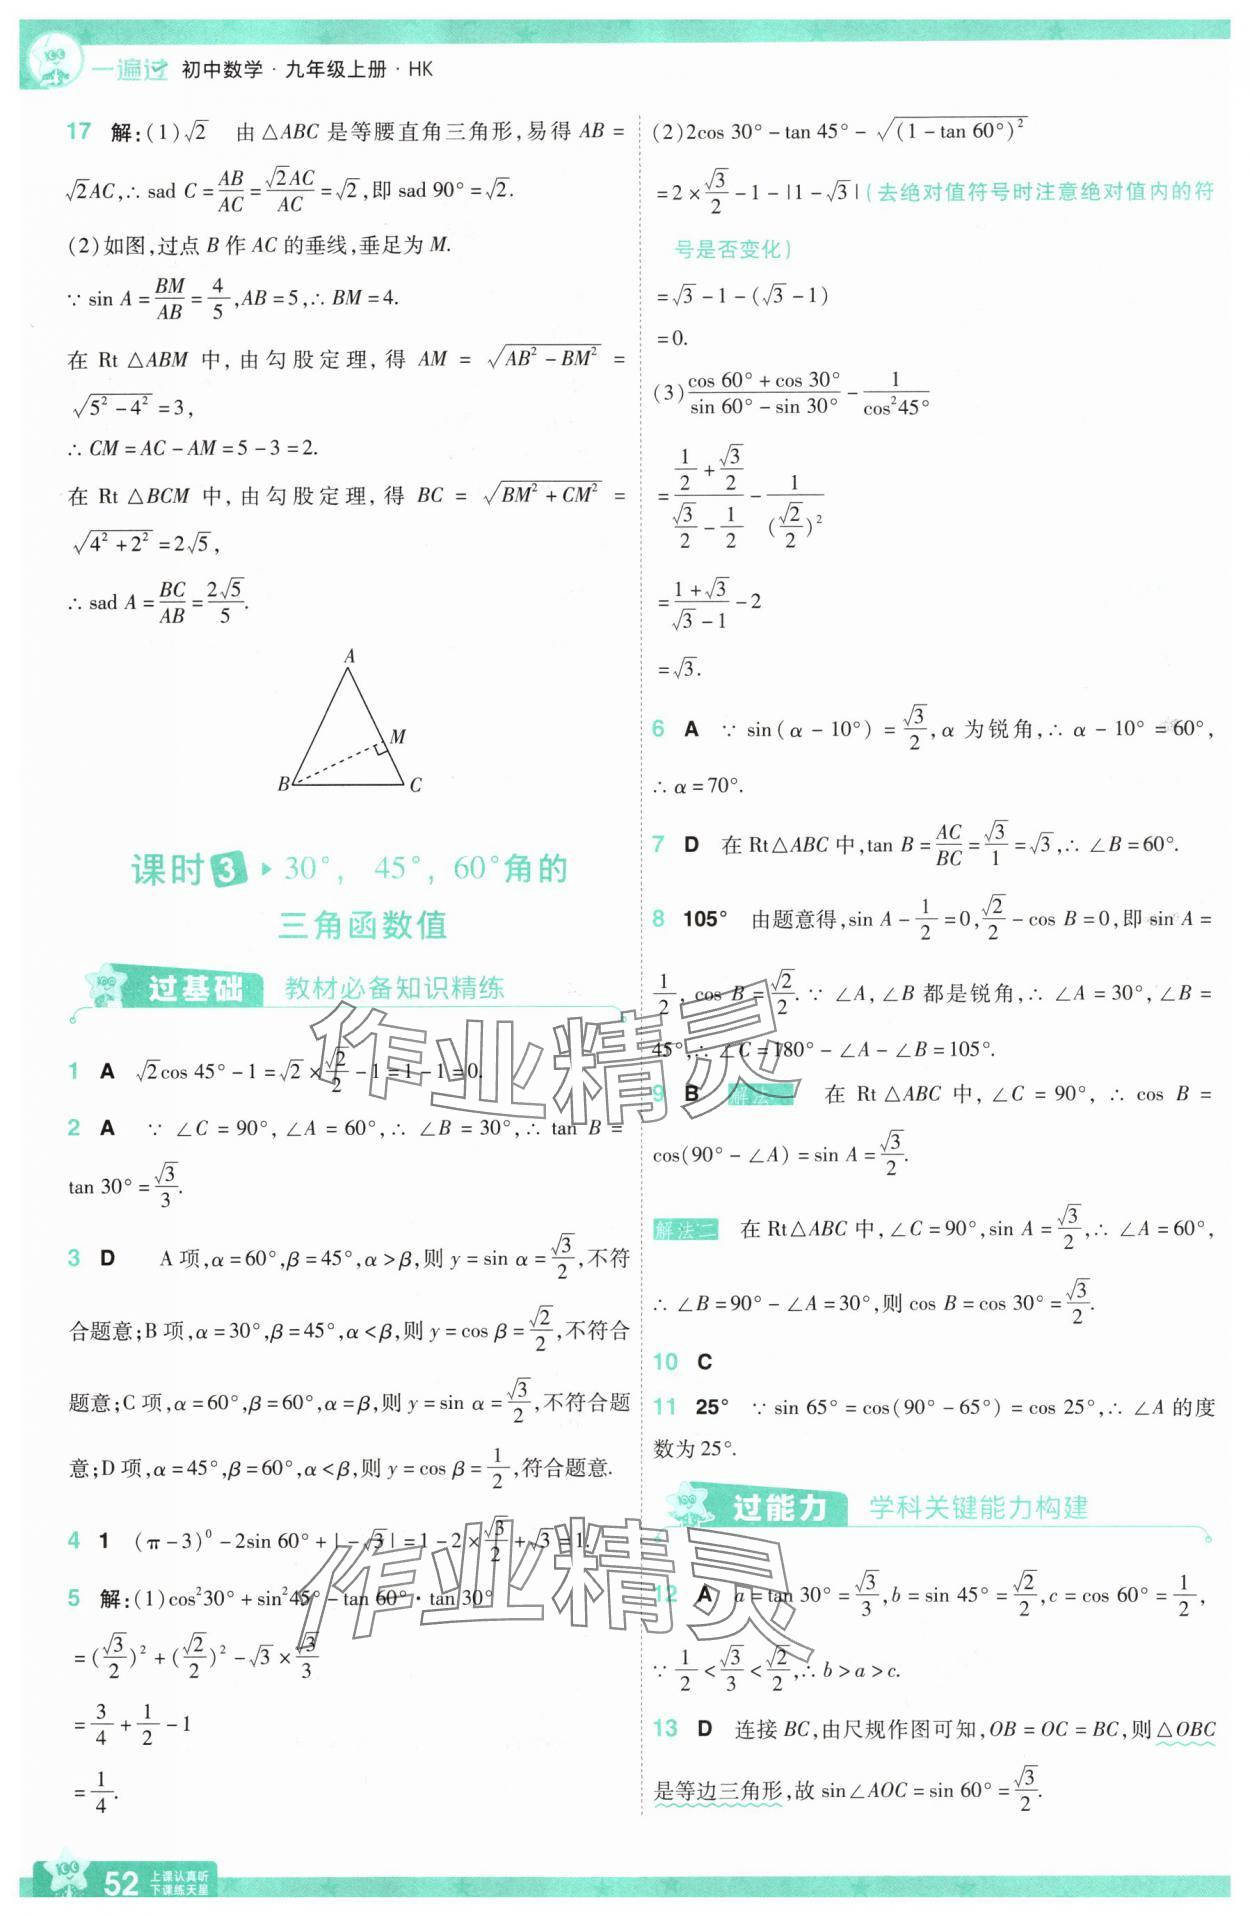 一遍过 初中数学·九年级上册·HK
17 解:(1)√2 由△ABC是等腰直角三角形,易得AB=
√2AC,∴sad C=AB/AC=√2AC/AC=√2,即sad 90°=√2.
(2)如图,过点B作AC的垂线,垂足为M.
∵sin A=BM/AB=4/5,AB=5,∴BM=4.
在Rt△ABM中,由勾股定理,得AM=√(AB²-BM²)=
√(5²-4²)=3,
∴CM=AC-AM=5-3=2.
在Rt△BCM中,由勾股定理,得BC=√(BM²+CM²)=
√(4²+2²)=2√5,
∴sad A=BC/AB=2√5/5.
A
M
B
C
课时3 ▶ 30°, 45°, 60°角的
三角函数值
过基础 教材必备知识精练
1 A √2cos 45°-1=√2×√2/2-1=1-1=0.
2 A ∵∠C=90°,∠A=60°,∴∠B=30°,∴tan B=
tan 30°=√3/3.
3 D A项,α=60°,β=45°,α>β,则y=sin α=√3/2,不符
合题意;B项,α=30°,β=45°,α<β,则y=cos β=√2/2,不符合
题意;C项,α=60°,β=60°,α=β,则y=sin α=√3/2,不符合题
意;D项,α=45°,β=60°,α<β,则y=cos β=1/2,符合题意.
4 1 (π-3)⁰-2sin 60°+|-√3|=1-2×√3/2+√3=1.
5 解:(1)cos²30°+sin²45°-tan 60°·tan 30°
=(√3/2)²+(√2/2)²-√3×√3/3
=3/4+1/2-1
=1/4.
(2)2cos 30°-tan 45°-√((1-tan 60°)²)
=2×√3/2-1-|1-√3|(去绝对值符号时注意绝对值内的符
号是否变化)
=√3-1-(√3-1)
=0.
(3)(cos 60°+cos 30°)/(sin 60°-sin 30°)-1/cos²45°
=(1/2+√3/2)/(√3/2-1/2)-1/(√2/2)²
=(1+√3)/(√3-1)-2
=√3.
6 A ∵sin(α-10°)=√3/2,α为锐角,∴α-10°=60°,
∴α=70°.
7 D 在Rt△ABC中,tan B=AC/BC=√3/1=√3,∴∠B=60°.
8 105° 由题意得,sin A-1/2=0,√2/2-cos B=0,即sin A=
1/2,cos B=√2/2.∵∠A,∠B都是锐角,∴∠A=30°,∠B=
45°,∴∠C=180°-∠A-∠B=105°.
9 B 解法一 在Rt△ABC中,∠C=90°,∴cos B=
cos(90°-∠A)=sin A=√3/2.
解法二 在Rt△ABC中,∠C=90°,sin A=√3/2,∴∠A=60°,
∴∠B=90°-∠A=30°,则cos B=cos 30°=√3/2.
10 C
11 25° ∵sin 65°=cos(90°-65°)=cos 25°,∴∠A的度
数为25°.
过能力 学科关键能力构建
12 A a=tan 30°=√3/3,b=sin 45°=√2/2,c=cos 60°=1/2,
∵1/2<√3/3<√2/2,∴b>a>c.
13 D 连接BC,由尺规作图可知,OB=OC=BC,则△OBC
是等边三角形,故sin∠AOC=sin 60°=√3/2.
作业精灵
作业精灵
52 上课认真听
下课练天星